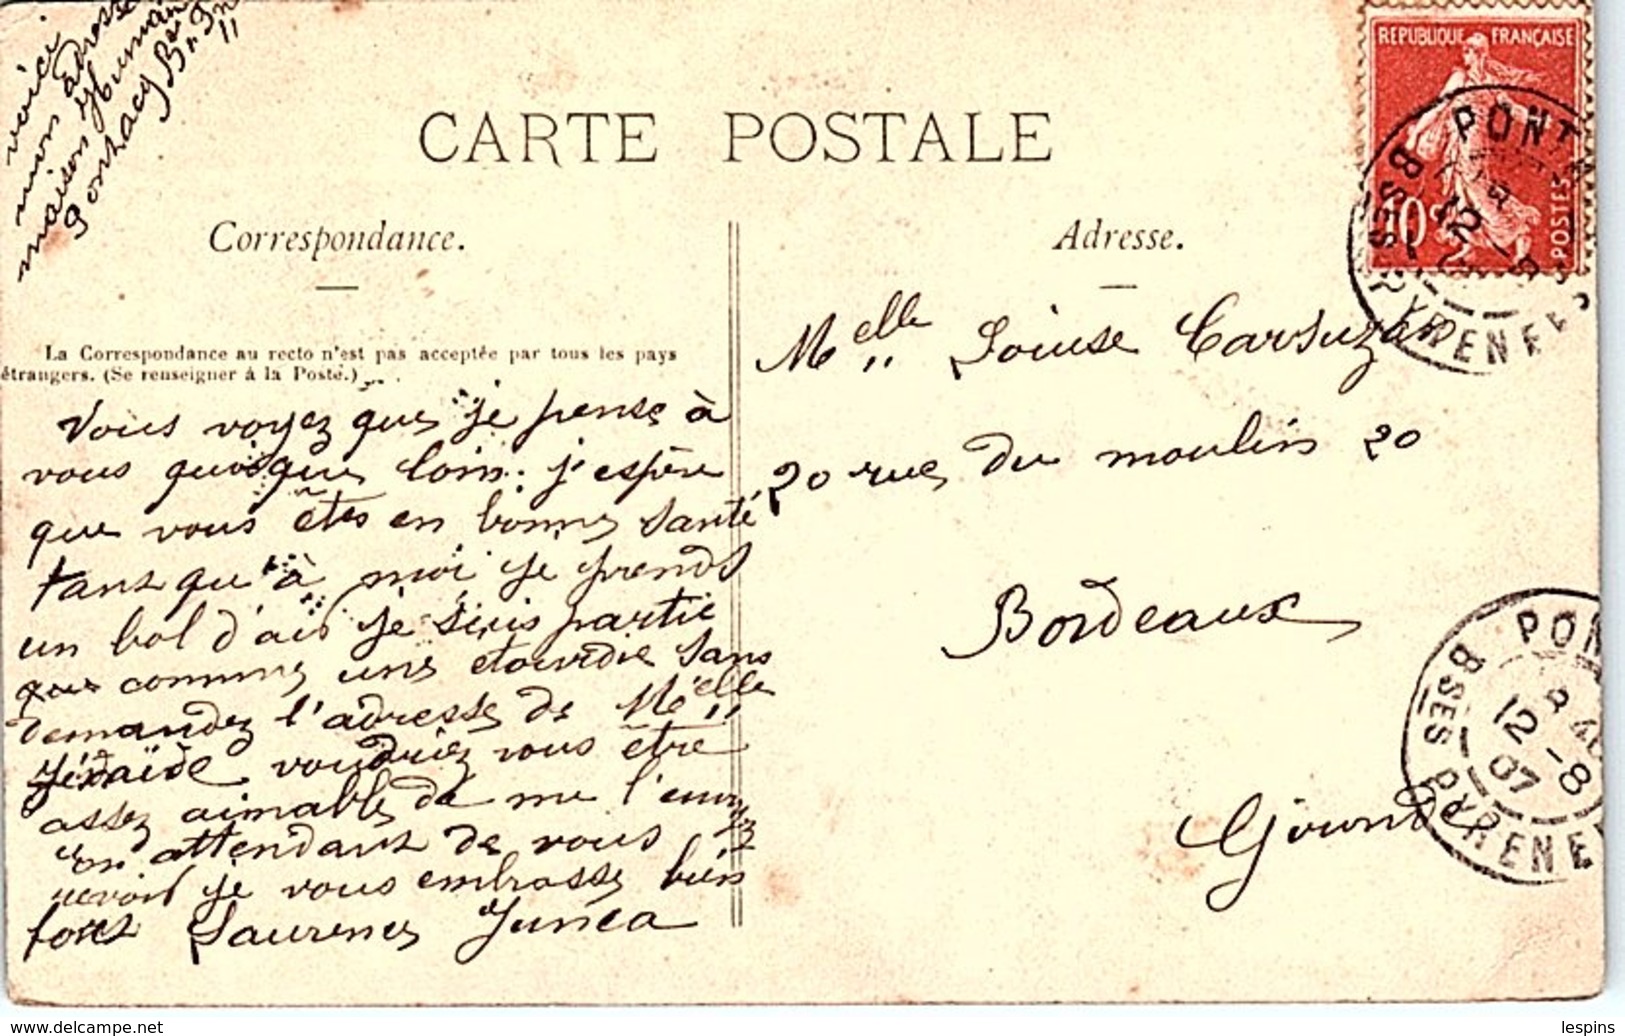 voici
mon adresse
maison Humain
Pontacq Bses Prn
CARTE POSTALE
Correspondance.
Adresse.
La Correspondance au recto n'est pas acceptée par tous les pays
étrangers. (Se renseigner à la Poste.)
Vous voyez que je pense à
vous quoique loin. j'espère
que vous êtes en bonne santé
tant qu'à moi je prends
un bol d'air je suis partie
comme une etourdie sans
demander l'adresse de Melle
voudriez vous être
assez aimable de me l'envoyez
en attendant de vous
revoir je vous embrasse bien
fort Laurence Junca
REPUBLIQUE FRANÇAISE
10c
POSTES
PONTA
BSES PYRENEES
12 -8
Melle Louise Carsuzan
20 rue du moulin 20
Bordeaux
Gironde
PON
BSES PYRENEE
12 -8
07
delcampe.net
lespins